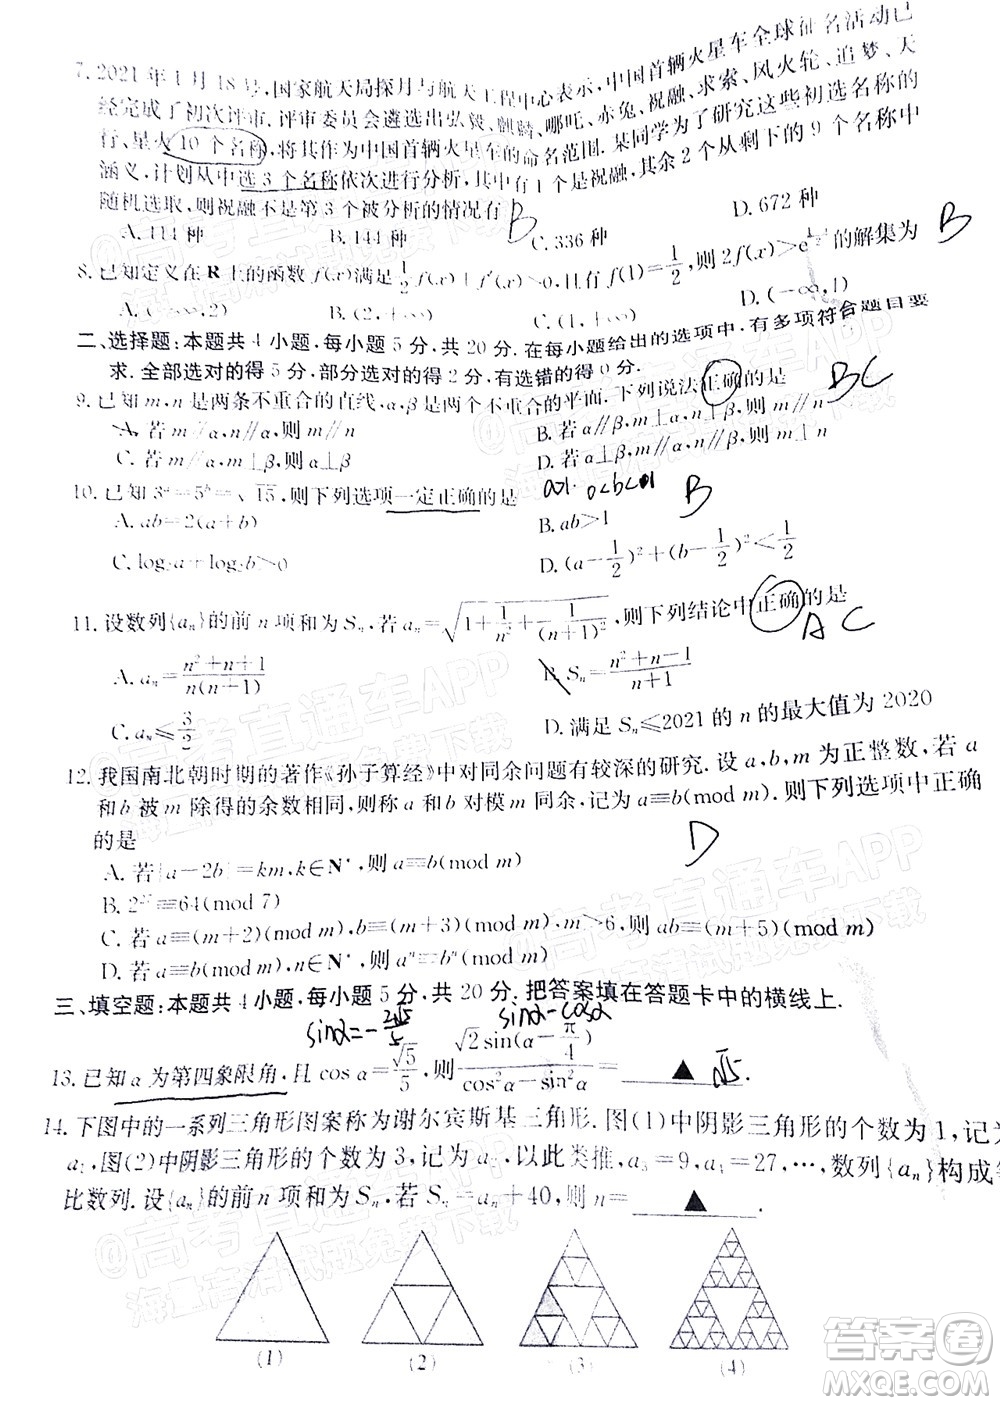 7. 2021 年 1 月 18 号,国家航天局探月与航天工程中心表示,中国首辆火星车全球征名活动已
经完成了初次评审.评审委员会遴选出弘毅、麒麟、哪吒、赤兔、祝融、求索、风火轮、追梦、天
行、星火 10 个名称,将其作为中国首辆火星车的命名范围.某同学为了研究这些初选名称的
涵义,计划从中选 3 个名称依次进行分析,其中有 1 个是祝融,其余 2 个从剩下的 9 个名称中
随机选取,则祝融不是第 3 个被分析的情况有 B
A. 144 种 B. 144 种 C. 336 种 D. 672 种
8. 已知定义在 R 上的函数 f(x)满足 且有 f(1)=1/2,则 2f(x)> 的解集为 B
A. (-∞,2) B. (2,+∞) C. (1,+∞) D. (-∞,1)
二、选择题:本题共 4 小题,每小题 5 分,共 20 分.在每小题给出的选项中,有多项符合题目要
求.全部选对的得 5 分,部分选对的得 2 分,有选错的得 0 分.
9. 已知 m,n 是两条不重合的直线,α,β是两个不重合的平面.下列说法正确的是 BC
A. 若 m∥α,n∥α,则 m∥n B. 若 α∥β,m⊥α,n⊥β,则 m∥n
C. 若 m∥α,m⊥β,则 α⊥β D. 若 α⊥β,m∥α,n∥β,则 m⊥n
10. 已知 3^a=5^b=√15,则下列选项一定正确的是 B
A. ab=2(a+b) B. ab>1
C. D. (a-1/2)²+(b-1/2)²<1/2
11. 设数列{aₙ}的前 n 项和为 Sₙ,若 aₙ=√(1+1/n²+1/(n+1)²),则下列结论中正确的是 AC
A. aₙ=(n²+n+1)/(n(n+1)) B. Sₙ=(n²+n-1)/(n+1)
C. aₙ≤3/2 D. 满足 Sₙ≤2021 的 n 的最大值为 2020
12. 我国南北朝时期的著作《孙子算经》中对同余问题有较深的研究.设 a,b,m 为正整数,若 a
和 b 被 m 除得的余数相同,则称 a 和 b 对模 m 同余,记为 a≡b(mod m).则下列选项中正确
的是 D
A. 若|a-2b|=km,k∈N*,则 a≡b(mod m)
B. ≡64(mod 7)
C. 若 a≡(m+2)(mod m),b≡(m+3)(mod m),m>6,则 ab≡(m+5)(mod m)
D. 若 a≡b(mod m),n∈N*,则 aⁿ≡bⁿ(mod m)
三、填空题:本题共 4 小题,每小题 5 分,共 20 分.把答案填在答题卡中的横线上.
sinα=-2√5/5 sinα-cosα
13. 已知 α 为第四象限角,且 cos α=√5/5,则 √2sin(α-π/4)/(cos²α-sin²α)=▲ √5.
14. 下图中的一系列三角形图案称为谢尔宾斯基三角形.图(1)中阴影三角形的个数为 1,记为
a₁,图(2)中阴影三角形的个数为 3,记为a₂,以此类推,a₃=9,a₄=27,…,数列{aₙ}构成等
比数列.设{aₙ}的前 n 项和为 Sₙ,若 Sₙ=aₙ+40,则 n=▲.
(1) (2) (3) (4)
@高考直通车APP
海量高清试题免费下载
答案卷
MXQE.COM